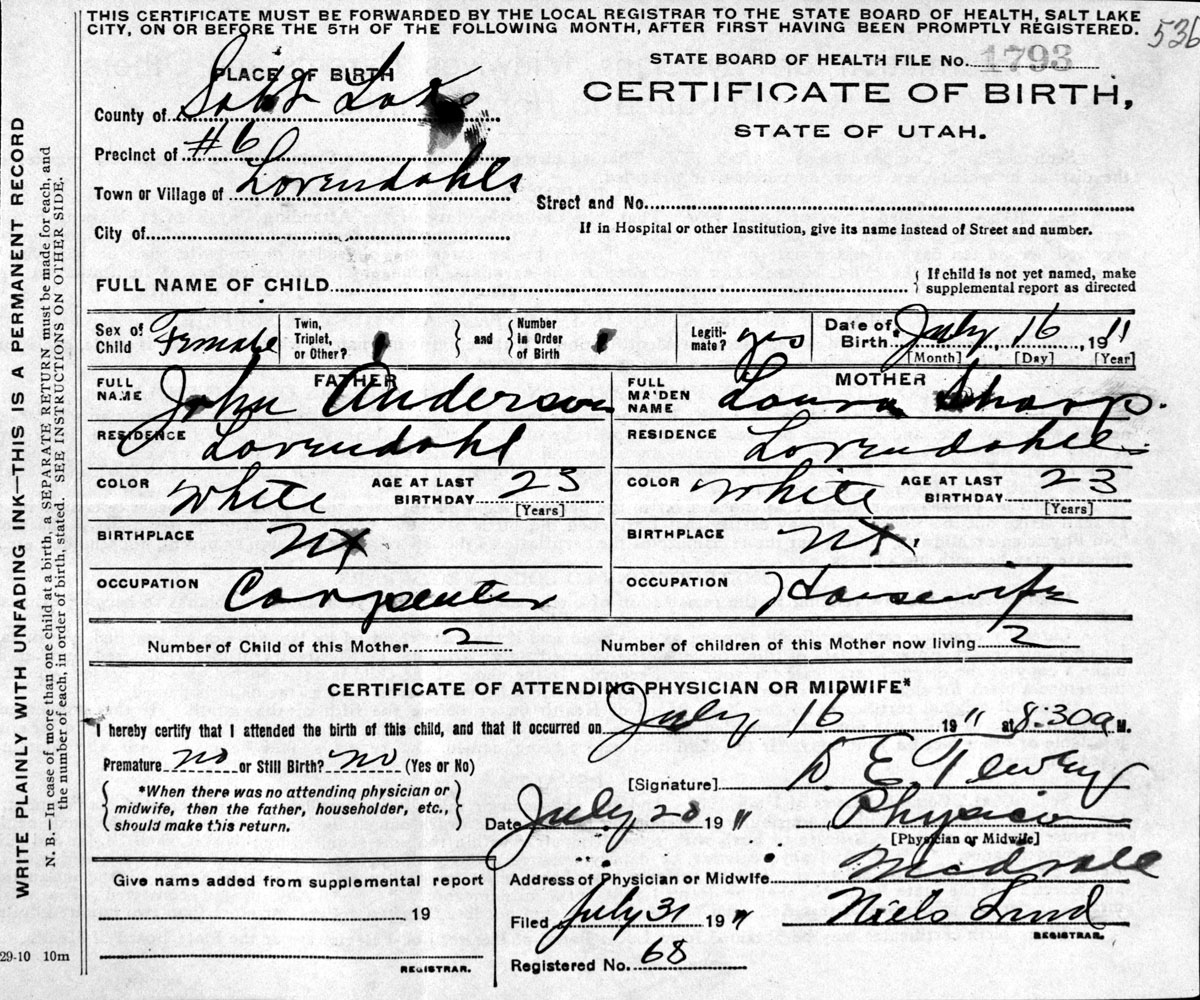 THIS CERTIFICATE MUST BE FORWARDED BY THE LOCAL REGISTRAR TO THE STATE BOARD OF HEALTH, SALT LAKE
CITY, ON OR BEFORE THE 5TH OF THE FOLLOWING MONTH, AFTER FIRST HAVING BEEN PROMPTLY REGISTERED.
536
STATE BOARD OF HEALTH FILE No. 1793
CERTIFICATE OF BIRTH,
STATE OF UTAH.
PLACE OF BIRTH
County of Salt Lake
Precinct of #6
Town or Village of Lovendahls
Street and No.
City of
If in Hospital or other Institution, give its name instead of Street and number.
FULL NAME OF CHILD
If child is not yet named, make
supplemental report as directed
Sex of Child Female
Twin, Triplet, or Other?
and
Number in Order of Birth
Legiti-mate? yes
Date of Birth July 16 1911
[Month] [Day] [Year]
FATHER
FULL NAME John Anderson
RESIDENCE Lovendahl
COLOR White AGE AT LAST BIRTHDAY 23
[Years]
BIRTHPLACE
OCCUPATION Carpenter
MOTHER
FULL MAIDEN NAME Laura Sharp.
RESIDENCE Lovendahl
COLOR White AGE AT LAST BIRTHDAY 23
[Years]
BIRTHPLACE
OCCUPATION Housewife
Number of Child of this Mother 2
Number of children of this Mother now living 2
CERTIFICATE OF ATTENDING PHYSICIAN OR MIDWIFE*
I hereby certify that I attended the birth of this child, and that it occurred on July 16 1911 at 8:30a M.
Premature no or Still Birth? no (Yes or No)
*When there was no attending physician or
midwife, then the father, householder, etc.,
should make this return.
[Signature] D E
Date July 20 19 11 Physician
[Physician or Midwife]
Address of Physician or Midwife
Filed July 31 19 11 Niels Lind
REGISTRAR.
Registered No. 68
Give name added from supplemental report
19
REGISTRAR.
29-10 10m
WRITE PLAINLY WITH UNFADING INK—THIS IS A PERMANENT RECORD
N. B.—In case of more than one child at a birth, a SEPARATE RETURN must be made for each, and
the number of each, in order of birth, stated. SEE INSTRUCTIONS ON OTHER SIDE.